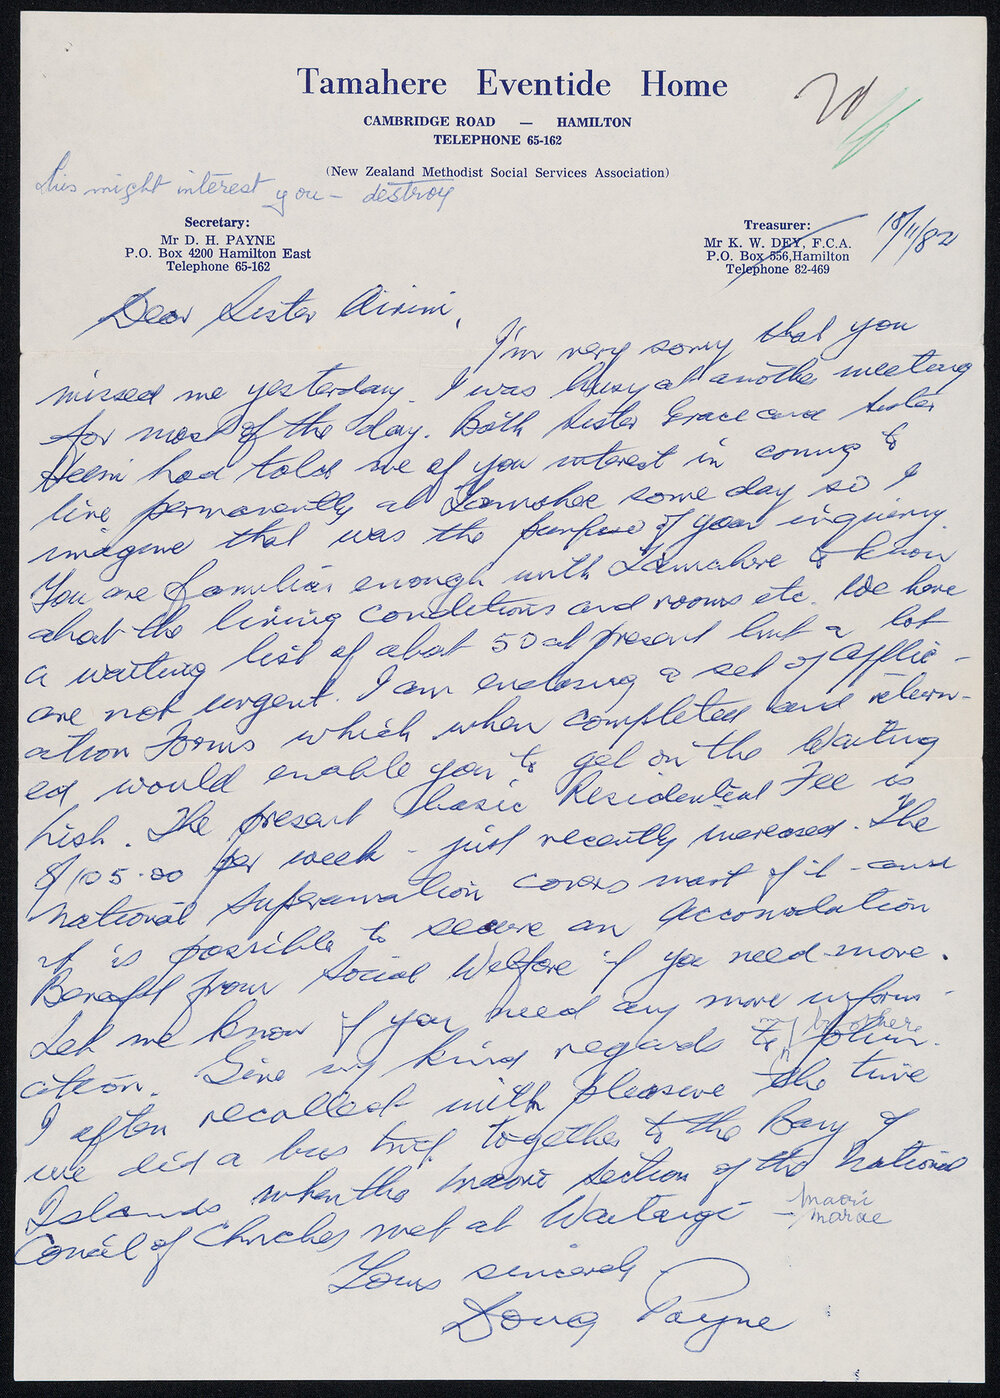 Tamahere Eventide Home
CAMBRIDGE ROAD — HAMILTON
TELEPHONE 65-162
(New Zealand Methodist Social Services Association)
this might interest you – destroy
Secretary:
Mr D. H. PAYNE
P.O. Box 4200 Hamilton East
Telephone 65-162
Treasurer:
Mr K. W. DEY, F.C.A.
P.O. Box 556, Hamilton
Telephone 82-469
18/11/82
Dear Sister Airini,
I'm very sorry that you
missed me yesterday. I was busy at another meeting
for most of the day. Both Sister Grace and Sister
Heeni had told me of you interest in coming to
live permanently at Tamahere some day so I
imagine that was the purpose of your inquiry.
You are familiar enough with Tamahere to know
about the living conditions and rooms etc. We have
a waiting list of about 50 at present but a lot
are not urgent. I am enclosing a set of Applic-
ation Forms which when completed and return-
ed would enable you to get on the Waiting
List. The present basic Residential Fee is
$105.00 per week – just recently increased. The
National Superannuation covers most of it – and
it is possible to secure an Accomodation
Benefit from Social Welfare if you need more.
Let me know if you need any more inform-
ation. Give my kind regards to John.
my brother
I often recollect with pleasure the time
we did a bus trip together to the Bay of
Islands when the Maori Section of the National
Council of Churches met at Waitangi
– Maori
marae
Yours sincerely
Doug Payne